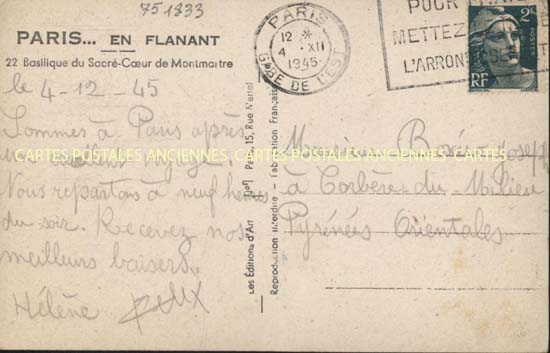 751833
PARIS... EN FLANANT
22 Basilique du Sacré-Cœur de Montmartre
le 4-12-45
Sommes à Paris après
un voyage.
Nous repartons à neuf heures
du soir. Recevez nos
meilleurs baisers.
Hélène Felix
Les Éditions d'Art Paris, 15, Rue Martel
Reproduction Interdite - Fabrication Française
PARIS
12 *
4 XII
1945
GARE DE L'EST
POUR
METTEZ
L'ARRON
2F
RF
Monsieur Joseph
à Corbère-du-Milieu
Pyrénées Orientales
CARTES POSTALES ANCIENNES CARTES POSTALES ANCIENNES CARTES POSTALES ANCIENNES